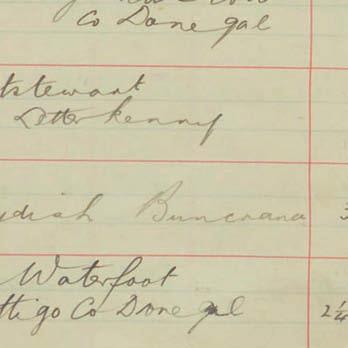 Co Donegal
tstewart
Letterkenny
ydish Buncrana 3
Waterfoot
ttigo Co Donegal 2¼